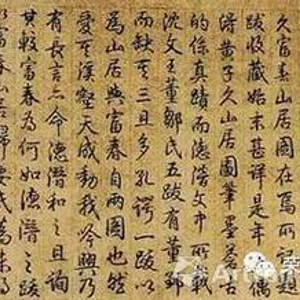 久富春山居圖在焉所記題
跋收藏始末甚詳是年冬偶
得黃子久山居圖筆墨蒼古
的係真蹟而德潛文中所載
沈文王董鄒氏五跋有董鄒
而缺其三且多孔諤一跋以
為山居與富春自兩圖也然
愛其溪壑天成動我吟興乃
有長言亦命德潛和之且詢
其較富春為何如德潛之跋
富春山居歸安氏為